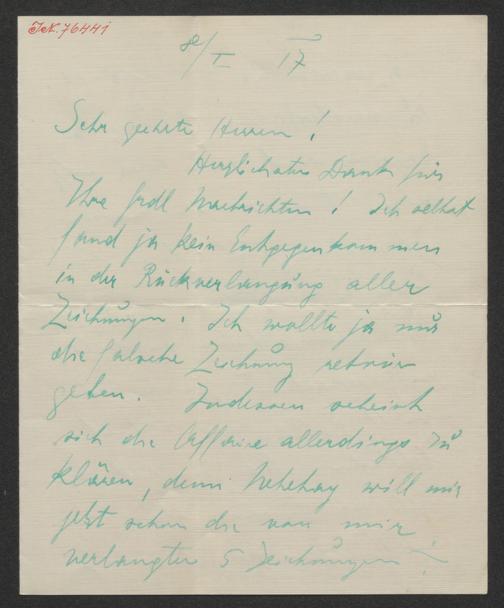 I.N. 76441
8/I 17
Sehr geehrte Herren!
Herzlichsten Dank für
Ihre frdl Nachrichten! Ich selbst
fand ja kein Entgegenkommen
in der Rückverlangung aller
Zeichnungen. Ich wollte ja nur
die falsche Zeichnung retour
geben. Indessen scheint
sich die Affaire allerdings zu
klären, denn will mir
jetzt schon die von mir
verlangten 5 Zeichnungen